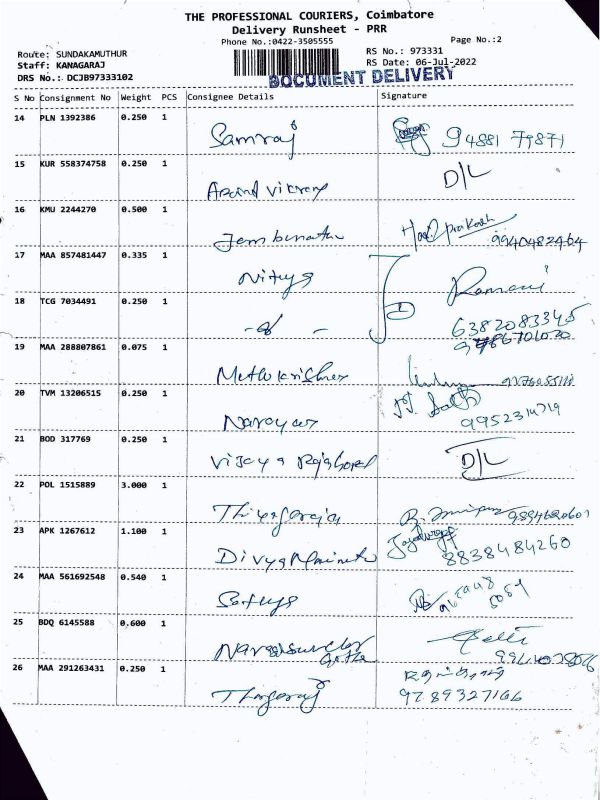 THE PROFESSIONAL COURIERS, Coimbatore
Delivery Runsheet - PRR
Phone No.:0422-3505555 Page No.:2
Route: SUNDAKAMUTHUR RS No.: 973331
Staff: KANAGARAJ RS Date: 06-Jul-2022
DRS No.: DCJB97333102 DOCUMENT DELIVERY
S No Consignment No Weight PCS Consignee Details Signature
14 PLN 1392386 0.250 1
Samraj 94881 79871
15 KUR 558374758 0.250 1
Arvind Vikram D/L
16 KMU 2244270 0.500 1
Jembunathan Hari prakash 9940482464
17 MAA 857481447 0.335 1
Nithya Ramani
18 TCG 7034491 0.250 1
6382083345
19 MAA 288807861 0.075 1
Muthukrishnan
20 TVM 13206515 0.250 1
Narayan 9952314719
21 BOD 317769 0.250 1
Vijaya Rajagopal D/L
22 POL 1515889 3.000 1
Thiyagaraja 9894620601
23 APK 1267612 1.100 1
Divya 8838484260
24 MAA 561692548 0.540 1
Sathya
25 BDQ 6145588 0.600 1
26 MAA 291263431 0.250 1
Thyagaraj 97893 27166